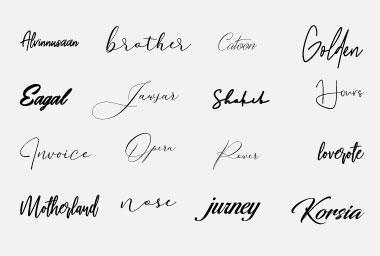 Alvinnusaan brother Catoon Golden
Eagal Jawsar Shakib Hours
Invoice Opera Rower loverote
Motherland nose jurney Korsia